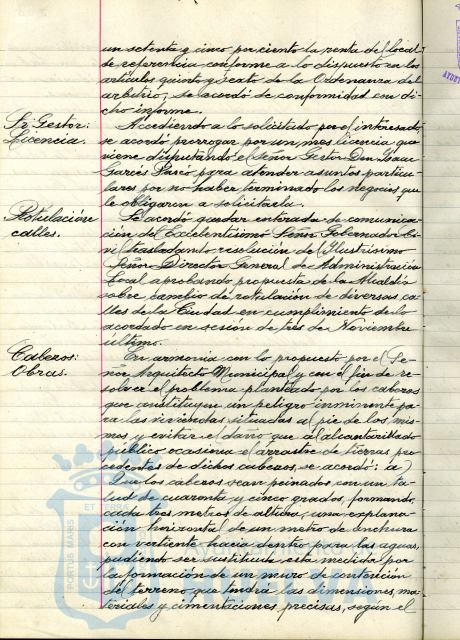 un setenta y cinco por ciento la renta del local
de referencia conforme a lo dispuesto en los
artículos quinto y sexto de la Ordenanza del
arbitrio, se acordó de conformidad con di-
cho informe.
Sr. Gestor:
Licencia.
Accediendo a lo solicitado por el interesado,
se acordó prorrogar por un mes licencia que
viene disfrutando el Señor Gestor Don Isaac
Garcés para atender asuntos particu-
lares por no haber terminado los negocios que
le obligaron a solicitarla.
Rotulación
calles.
Se acordó quedar enterada de comunica-
ción del Excelentísimo Señor Gobernador Ci-
vil trasladando resolución del Ilustrísimo
Señor Director General de Administración
Local aprobando propuesta de la Alcaldía
sobre cambio de rotulación de diversas ca-
lles de la Ciudad en cumplimiento de lo
acordado en sesión de tres de Noviembre
último.
Cabezos:
Obras.
En armonía con lo propuesto por el Se-
ñor Arquitecto Municipal y con el fin de re-
solver el problema planteado por los cabezos
que constituyen un peligro inminente pa-
ra las viviendas situadas al pie de los mis-
mos y evitar el daño que al alcantarillado
público ocasiona el arrastre de tierras pro-
cedentes de dichos cabezos, se acordó: a)
Que los cabezos sean peinados con un ta-
lud de cuarenta y cinco grados, formando,
cada tres metros de altura, una explana-
ción horizontal de un metro de anchura
con vertiente hacia dentro para las aguas,
pudiendo ser sustituida esta medida por
la formación de un muro de contención
del terreno que tendrá las dimensiones, ma-
teriales y cimentaciones precisas, según el
PORTUS MARIS
ET TERRAE
Ayuntamiento de
HUELVA